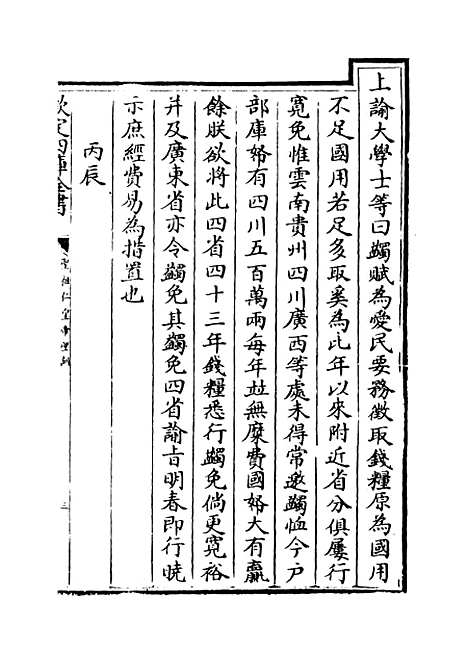 上諭大學士等曰蠲賦為愛民要務徵取錢糧原為國用
不足國用若足多取奚為比年以來附近省分俱屢行
寬免惟雲南貴州四川廣西等處未得常邀蠲恤今户
部庫帑有四川五百萬兩每年並無糜費國帑大有贏
餘朕欲將此四省四十三年錢糧悉行蠲免倘更寬裕
并及廣東省亦令蠲免其蠲免四省諭㫖明春即行曉
示庶經費易為措置也
丙辰
欽定四庫全書
聖祖仁皇帝聖訓
三